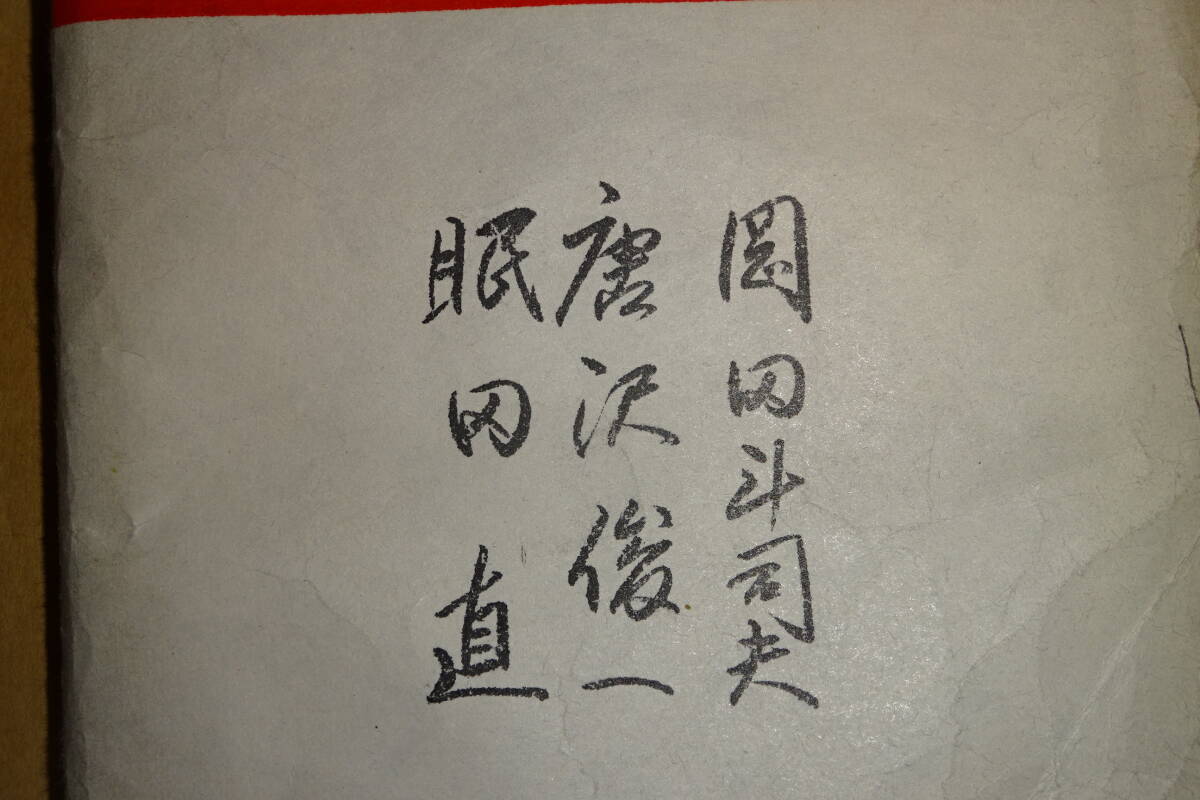 岡田斗司夫
唐沢俊一
眠田直